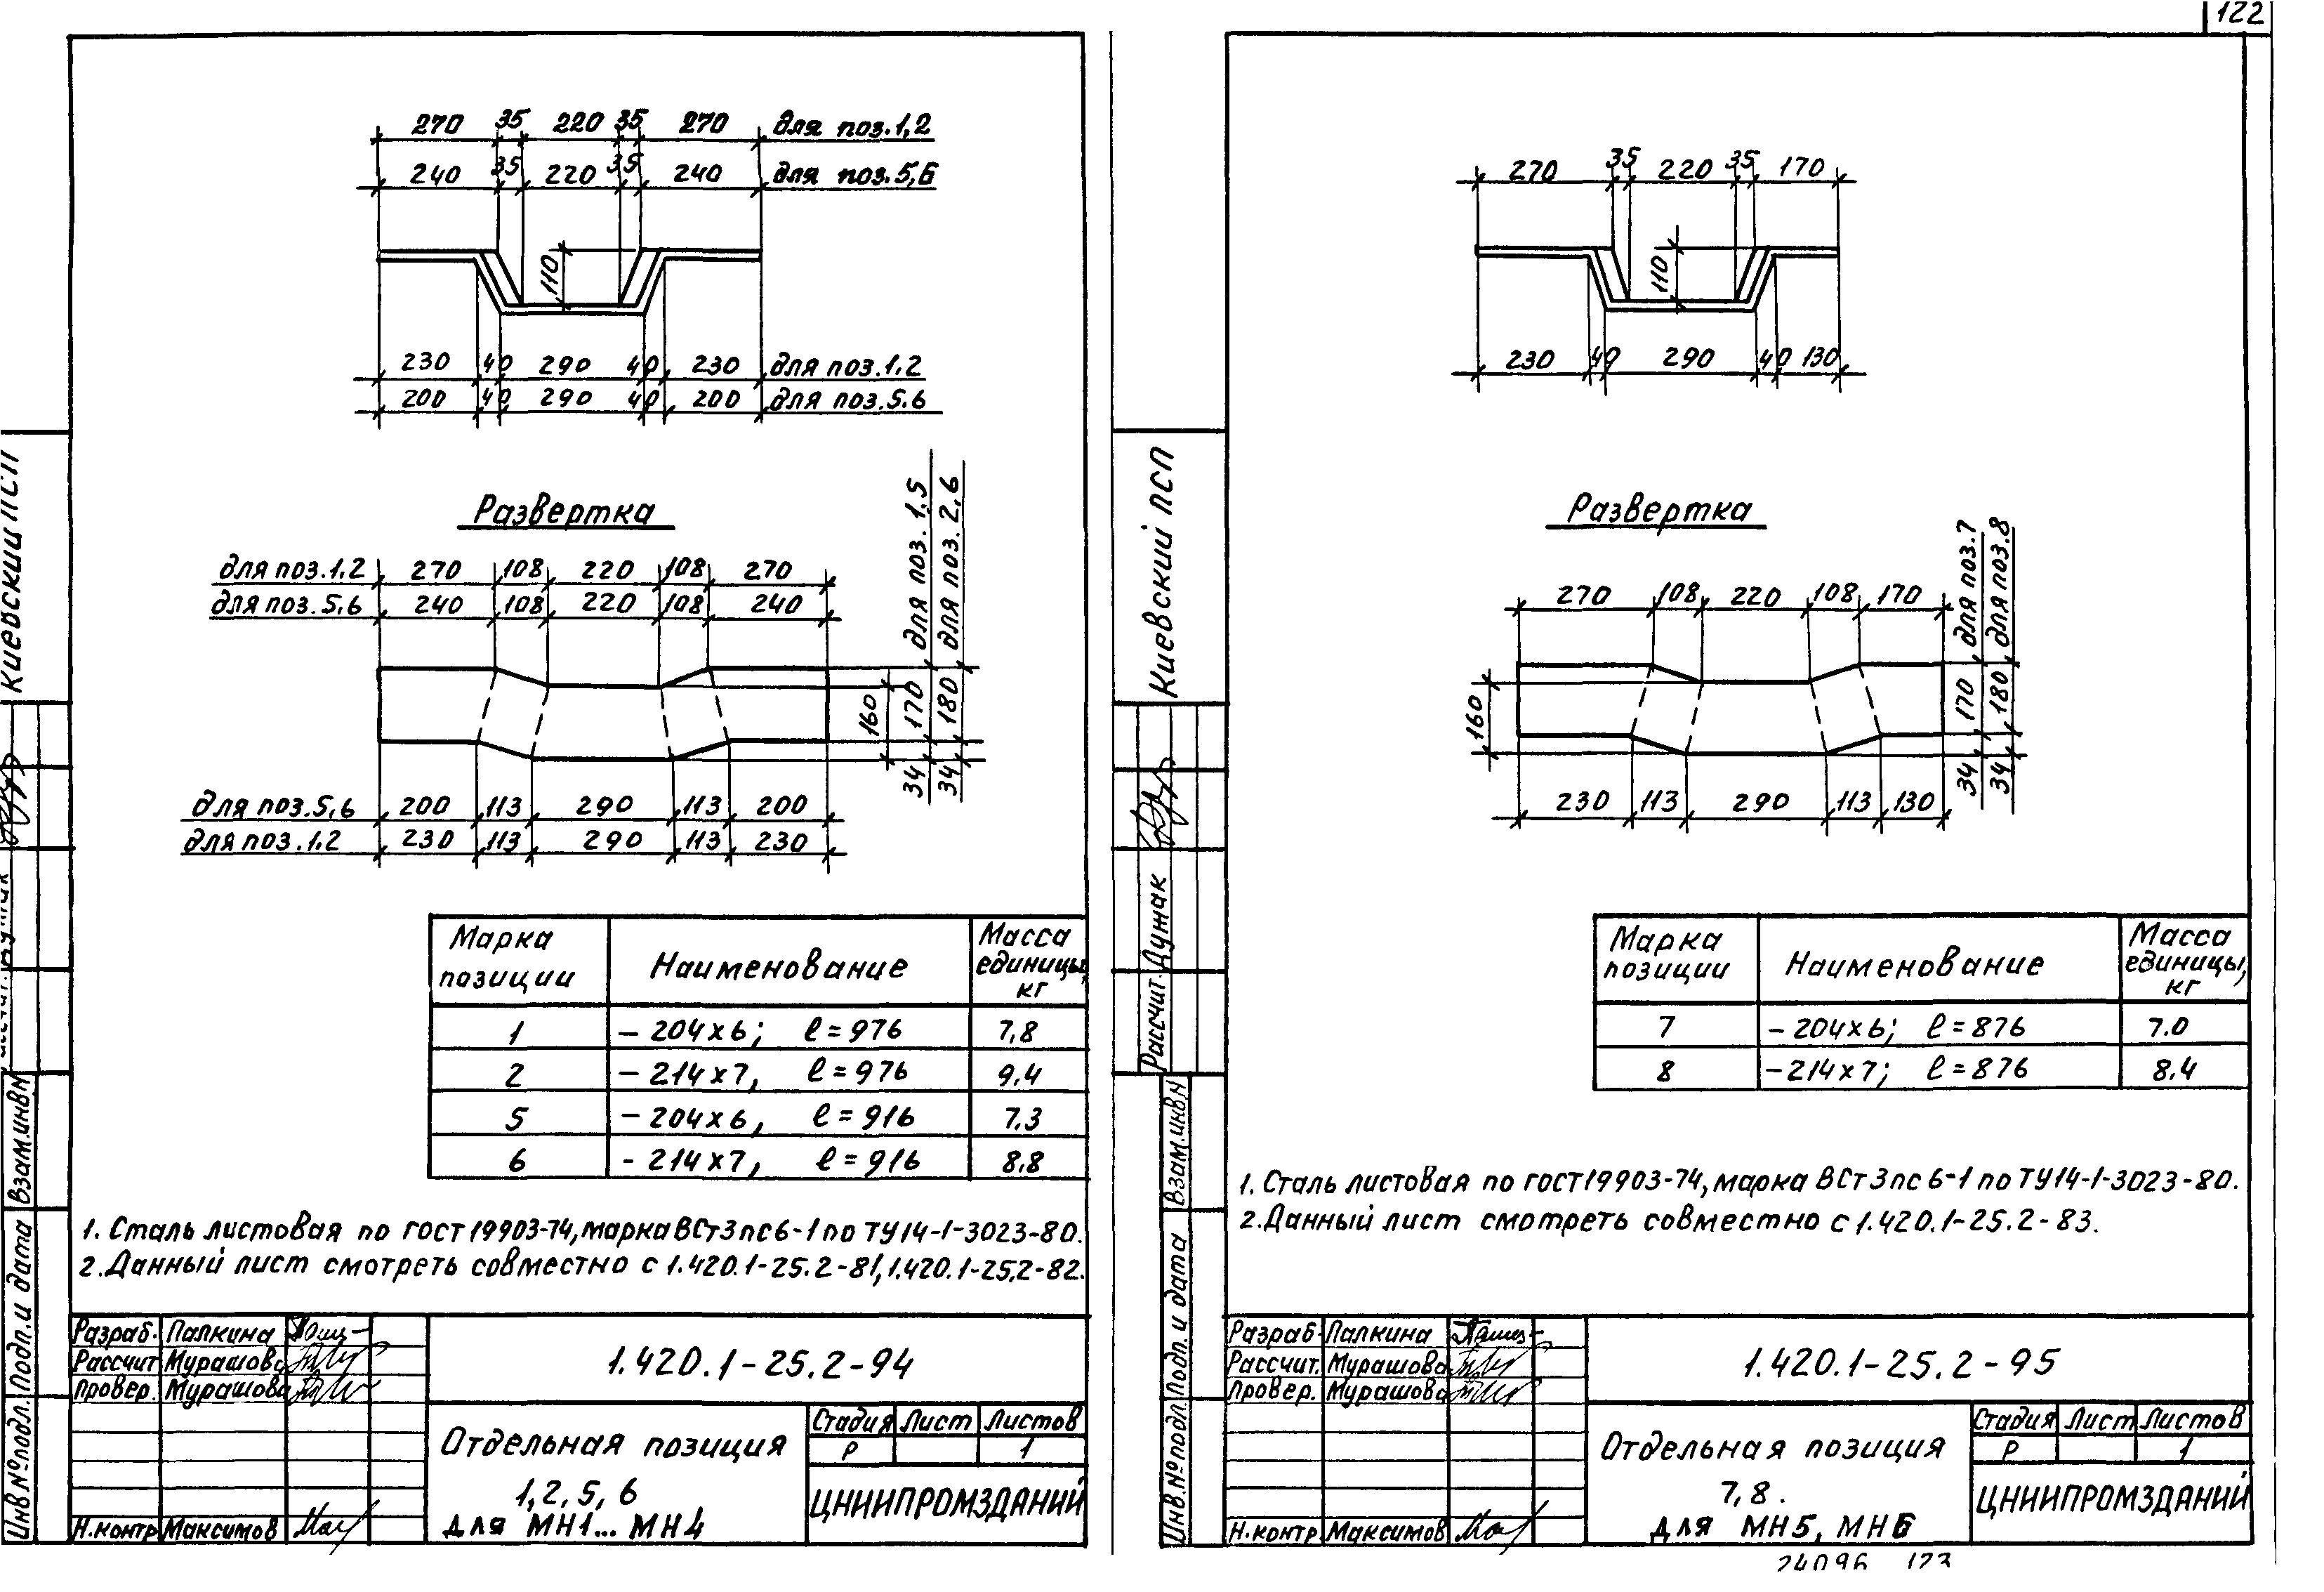 122
270 35 220 35 270 для поз.1,2
240 35 220 35 240 для поз.5,6
110
230 40 290 40 230 для поз.1,2
200 40 290 40 200 для поз.5.6
Развертка
для поз. 1,5
для поз. 2,6
для поз.1,2 270 108 220 108 270
для поз.5,6 240 108 220 108 240
160 170 180
34 34
для поз.5,6 200 113 290 113 200
для поз.1,2 230 113 290 113 230
Марка позиции Наименование Масса единицы, кг
1 – 204×6; ℓ=976 7,8
2 – 214×7, ℓ=976 9,4
5 – 204×6, ℓ=916 7.3
6 - 214×7, ℓ=916 8,8
1. Сталь листовая по гост 19903-74, марка ВСт3пс6-1 по ТУ14-1-3023-80.
2. Данный лист смотреть совместно с 1.420.1-25.2-81, 1.420.1-25.2-82.
Разраб. Палкина
Рассчит Мурашова
Провер. Мурашова
Н.контр Максимов
1.420.1-25.2-94
Отдельная позиция
1,2,5,6
для МН1...МН4
Стадия Лист Листов
Р 1
ЦНИИПРОМЗДАНИЙ
Киевский ПСП
Взам.инв.N
Подп. и дата
Инв.№подл.
270 35 220 35 170
110
230 40 290 40 130
Развертка
для поз.7
для поз.8
270 108 220 108 170
160 170 180
34 34
230 113 290 113 130
Марка позиции Наименование Масса единицы, кг
7 – 204×6; ℓ=876 7.0
8 – 214×7; ℓ=876 8.4
1. Сталь листовая по гост19903-74, марка ВСт3пс6-1 по ТУ14-1-3023-80.
2. Данный лист смотреть совместно с 1.420.1-25.2-83.
Разраб. Палкина
Рассчит. Мурашова
Провер. Мурашова
Н.контр. Максимов
1.420.1-25.2-95
Отдельная позиция
7,8.
для МН5, МН6
Стадия Лист Листов
Р 1
ЦНИИПРОМЗДАНИЙ
Киевский ПСП
Рассчит. Дунак
Взам.инв.N
Подп. и дата
Инв.№подл.
24096 123